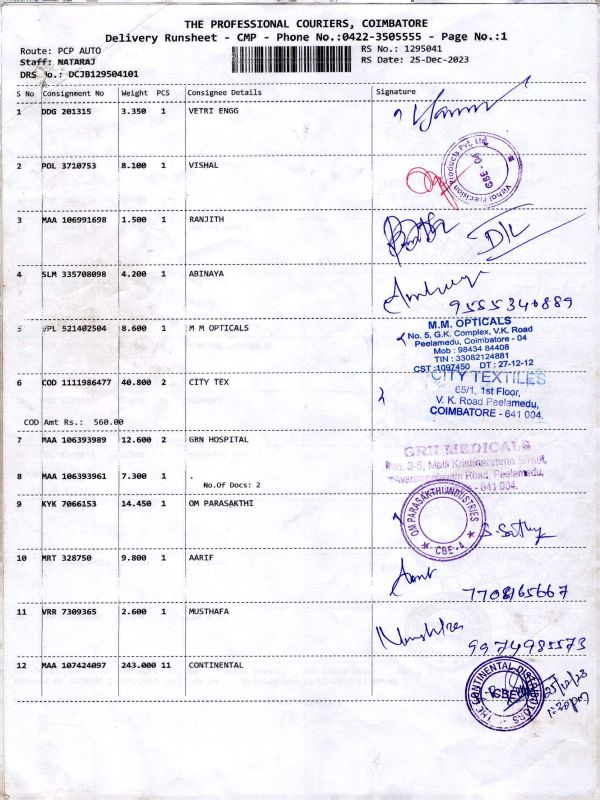 THE PROFESSIONAL COURIERS, COIMBATORE
Delivery Runsheet - CMP - Phone No.:0422-3505555 - Page No.:1
Route: PCP AUTO
RS No.: 1295041
Staff: NATARAJ
RS Date: 25-Dec-2023
DRS No.: DCJB129504101
S No Consignment No Weight PCS Consignee Details Signature
1 DDG 201315 3.350 1 VETRI ENGG
2 POL 3710753 8.100 1 VISHAL
Vishal Precision Products Pvt. Ltd.
3 MAA 106991698 1.500 1 RANJITH
4 SLM 335708098 4.200 1 ABINAYA
5 VPL 521402504 8.600 1 M M OPTICALS
M.M. OPTICALS
No. 5, G.K. Complex, V.K. Road
Peelamedu, Coimbatore - 04
Mob : 98434 84408
TIN : 33082124881
CST :1097450 DT : 27-12-12
6 COD 1111986477 40.800 2 CITY TEX
CITY TEXTILES
65/1, 1st Floor,
V. K. Road Peelamedu,
COIMBATORE - 641 004.
COD Amt Rs.: 560.00
7 MAA 106393989 12.600 2 GRN HOSPITAL
GRN MEDICALS
8 MAA 106393961 7.300 1 .
No.Of Docs: 2
Peelamedu,
- 641 004.
9 KYK 7066153 14.450 1 OM PARASAKTHI
OM PARASAKTHI INDUSTRIES
★ CBE-4 ★
10 MRT 328750 9.800 1 AARIF
7708165667
11 VRR 7309365 2.600 1 MUSTHAFA
9974985573
12 MAA 107424097 243.000 11 CONTINENTAL
THE CONTINENTAL DISTRIBUTORS
CBE
25/12/23
1:20pm